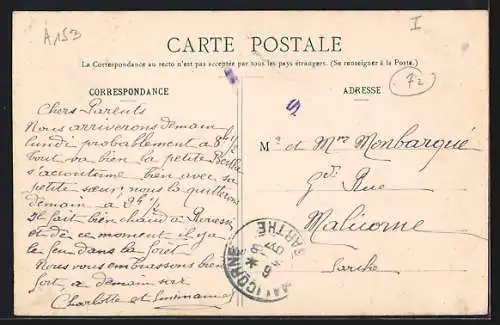 A153
I
72
CARTE POSTALE
La Correspondance au recto n'est pas acceptée par tous les pays étrangers. (Se renseigner à la Poste.)
CORRESPONDANCE
Chers Parents
Nous arriverons demain
lundi probablement à 8h 1/2
tout va bien la petite
s'accoutume bien avec sa
petite sœur; nous la quitterons
demain à 2h 1/2
Il fait bien chaud à
et de ce moment il y a
le feu dans la forêt
Nous vous embrassons bien
fort, à demain soir
Charlotte et
ADRESSE
M. et Mme Monbarqué
Gde Rue
Malicorne
Sarthe
MALICORNE
SARTHE